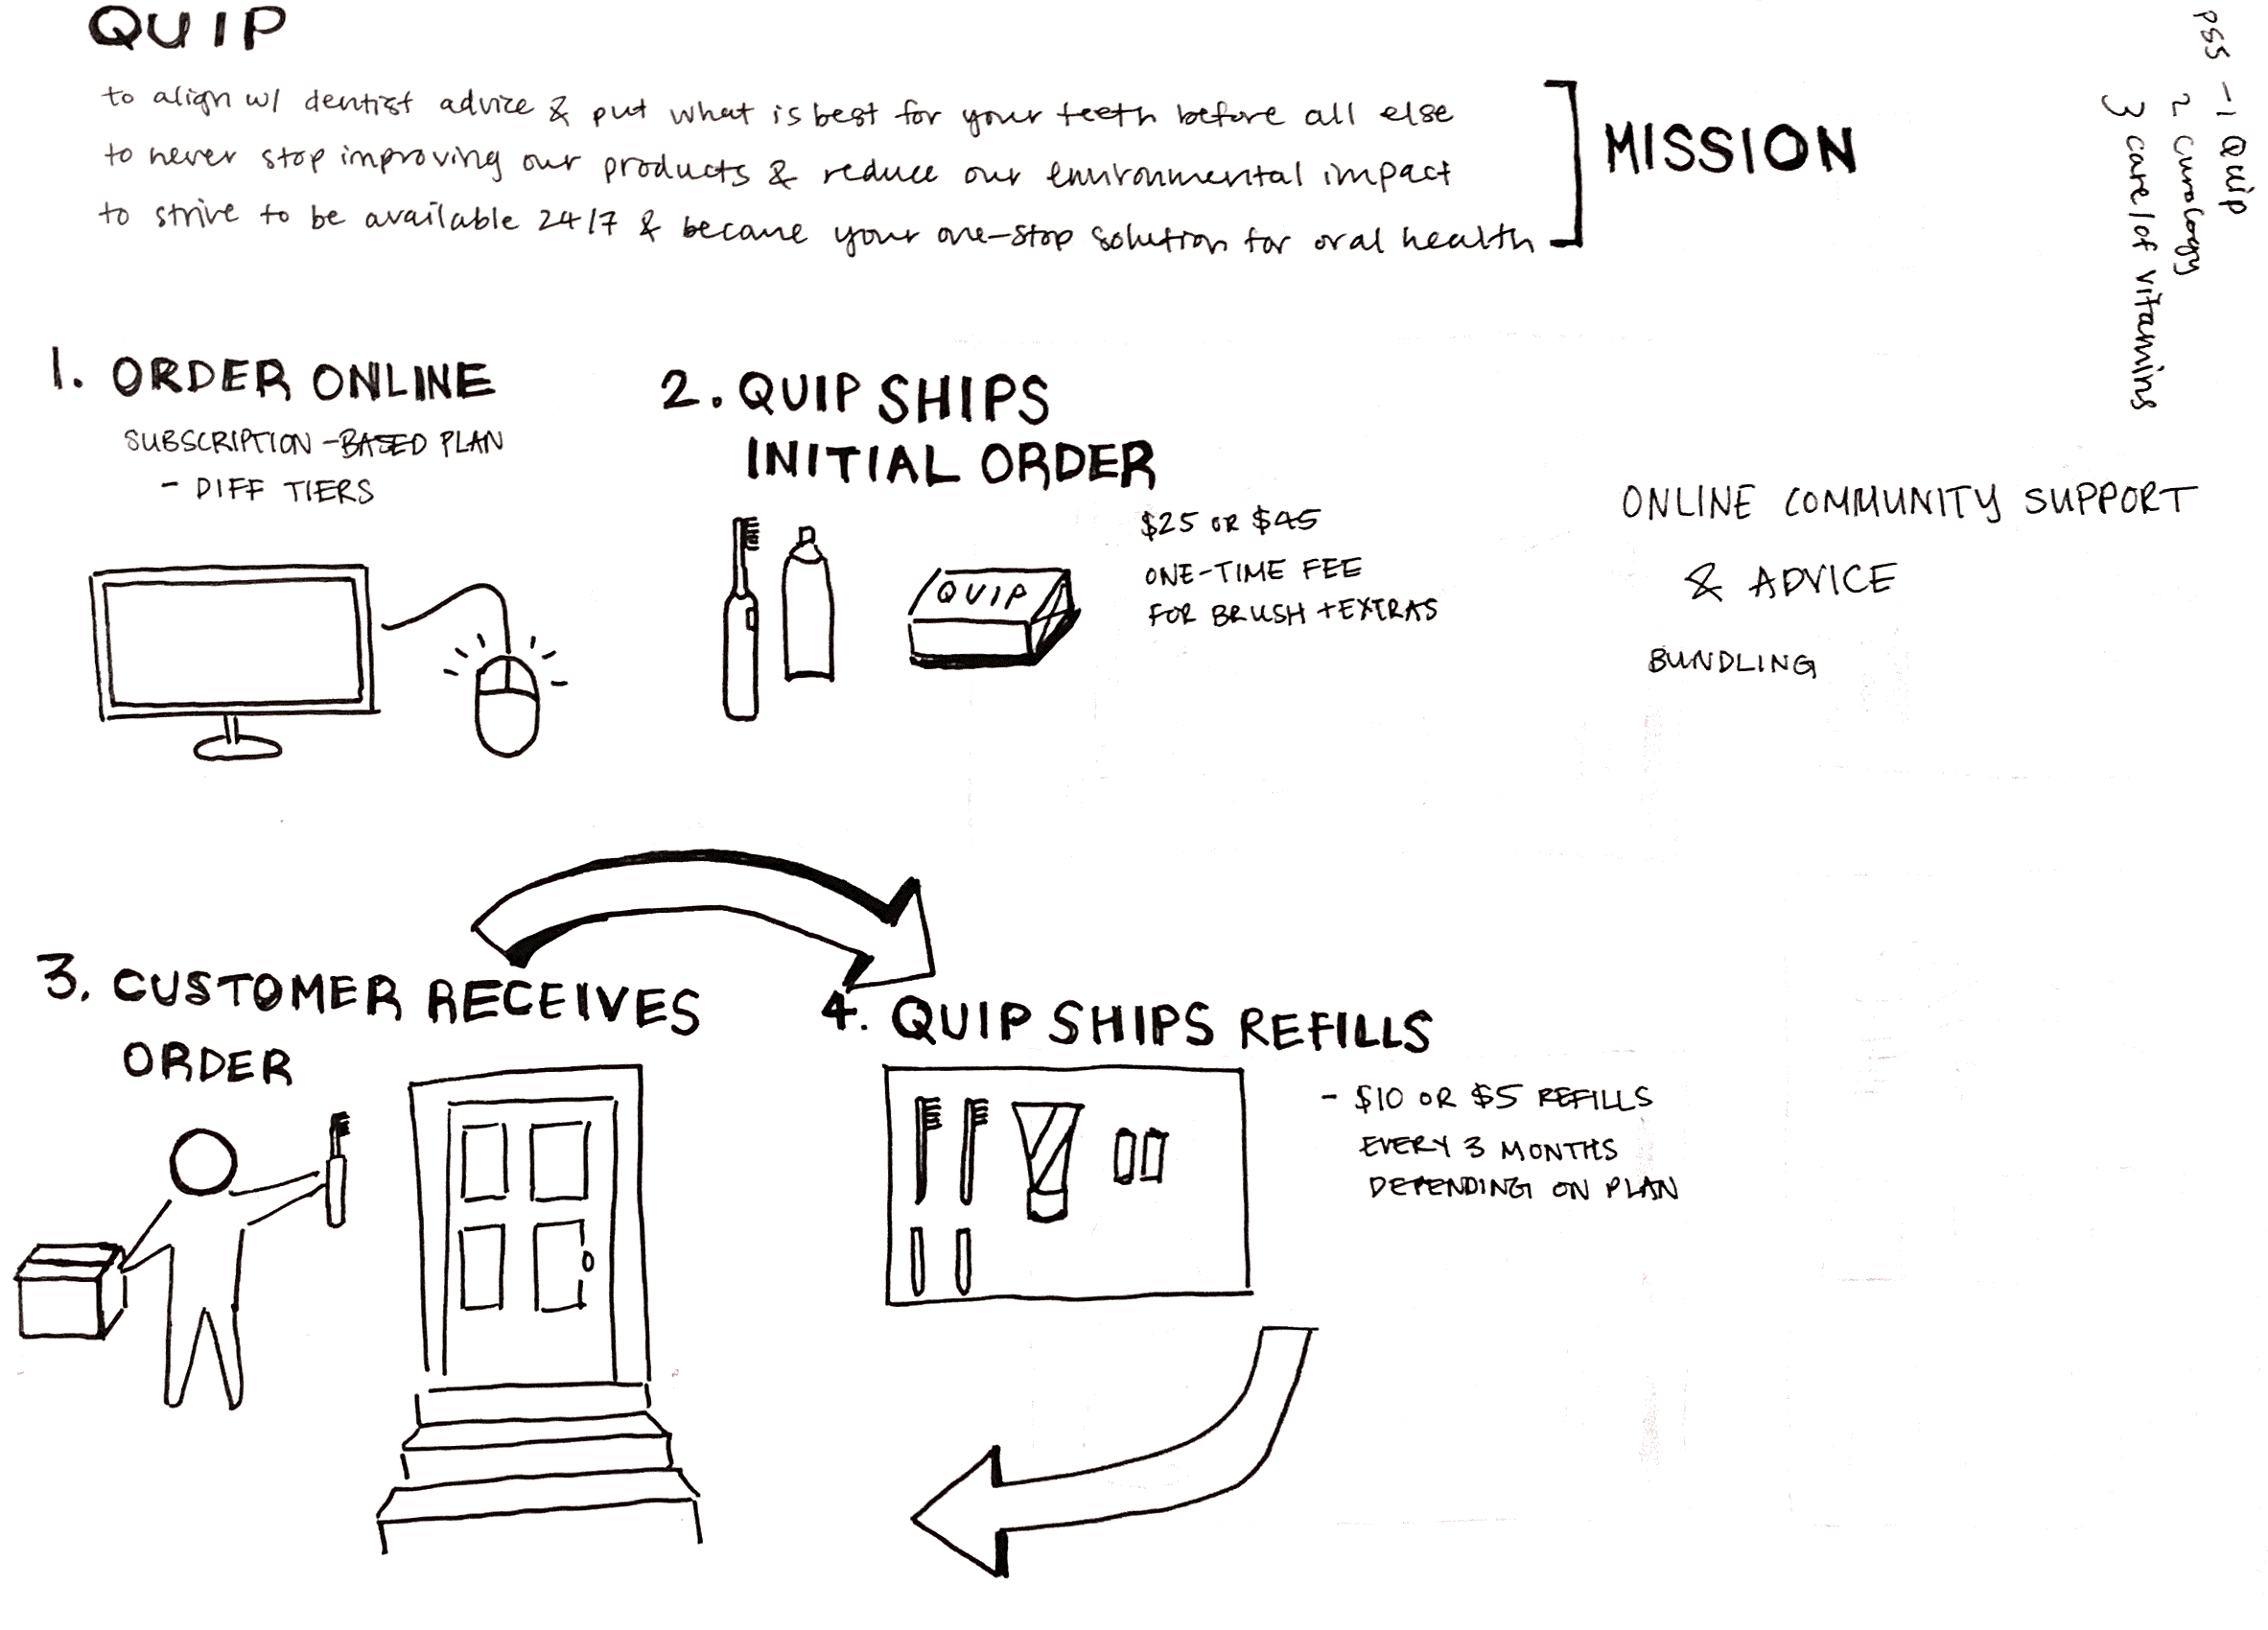 QUIP
to align w/ dentist advice & put what is best for your teeth before all else
to never stop improving our products & reduce our environmental impact
to strive to be available 24/7 & became your one-stop solution for oral health
MISSION
PSS - 1 Quip
2 curology
3 care/of vitamins
1. ORDER ONLINE
SUBSCRIPTION-BASED PLAN
- DIFF TIERS
2. QUIP SHIPS
INITIAL ORDER
QUIP
$25 OR $45
ONE-TIME FEE
FOR BRUSH + EXTRAS
ONLINE COMMUNITY SUPPORT
& ADVICE
BUNDLING
3. CUSTOMER RECEIVES
ORDER
4. QUIP SHIPS REFILLS
- $10 OR $5 REFILLS
EVERY 3 MONTHS
DEPENDING ON PLAN